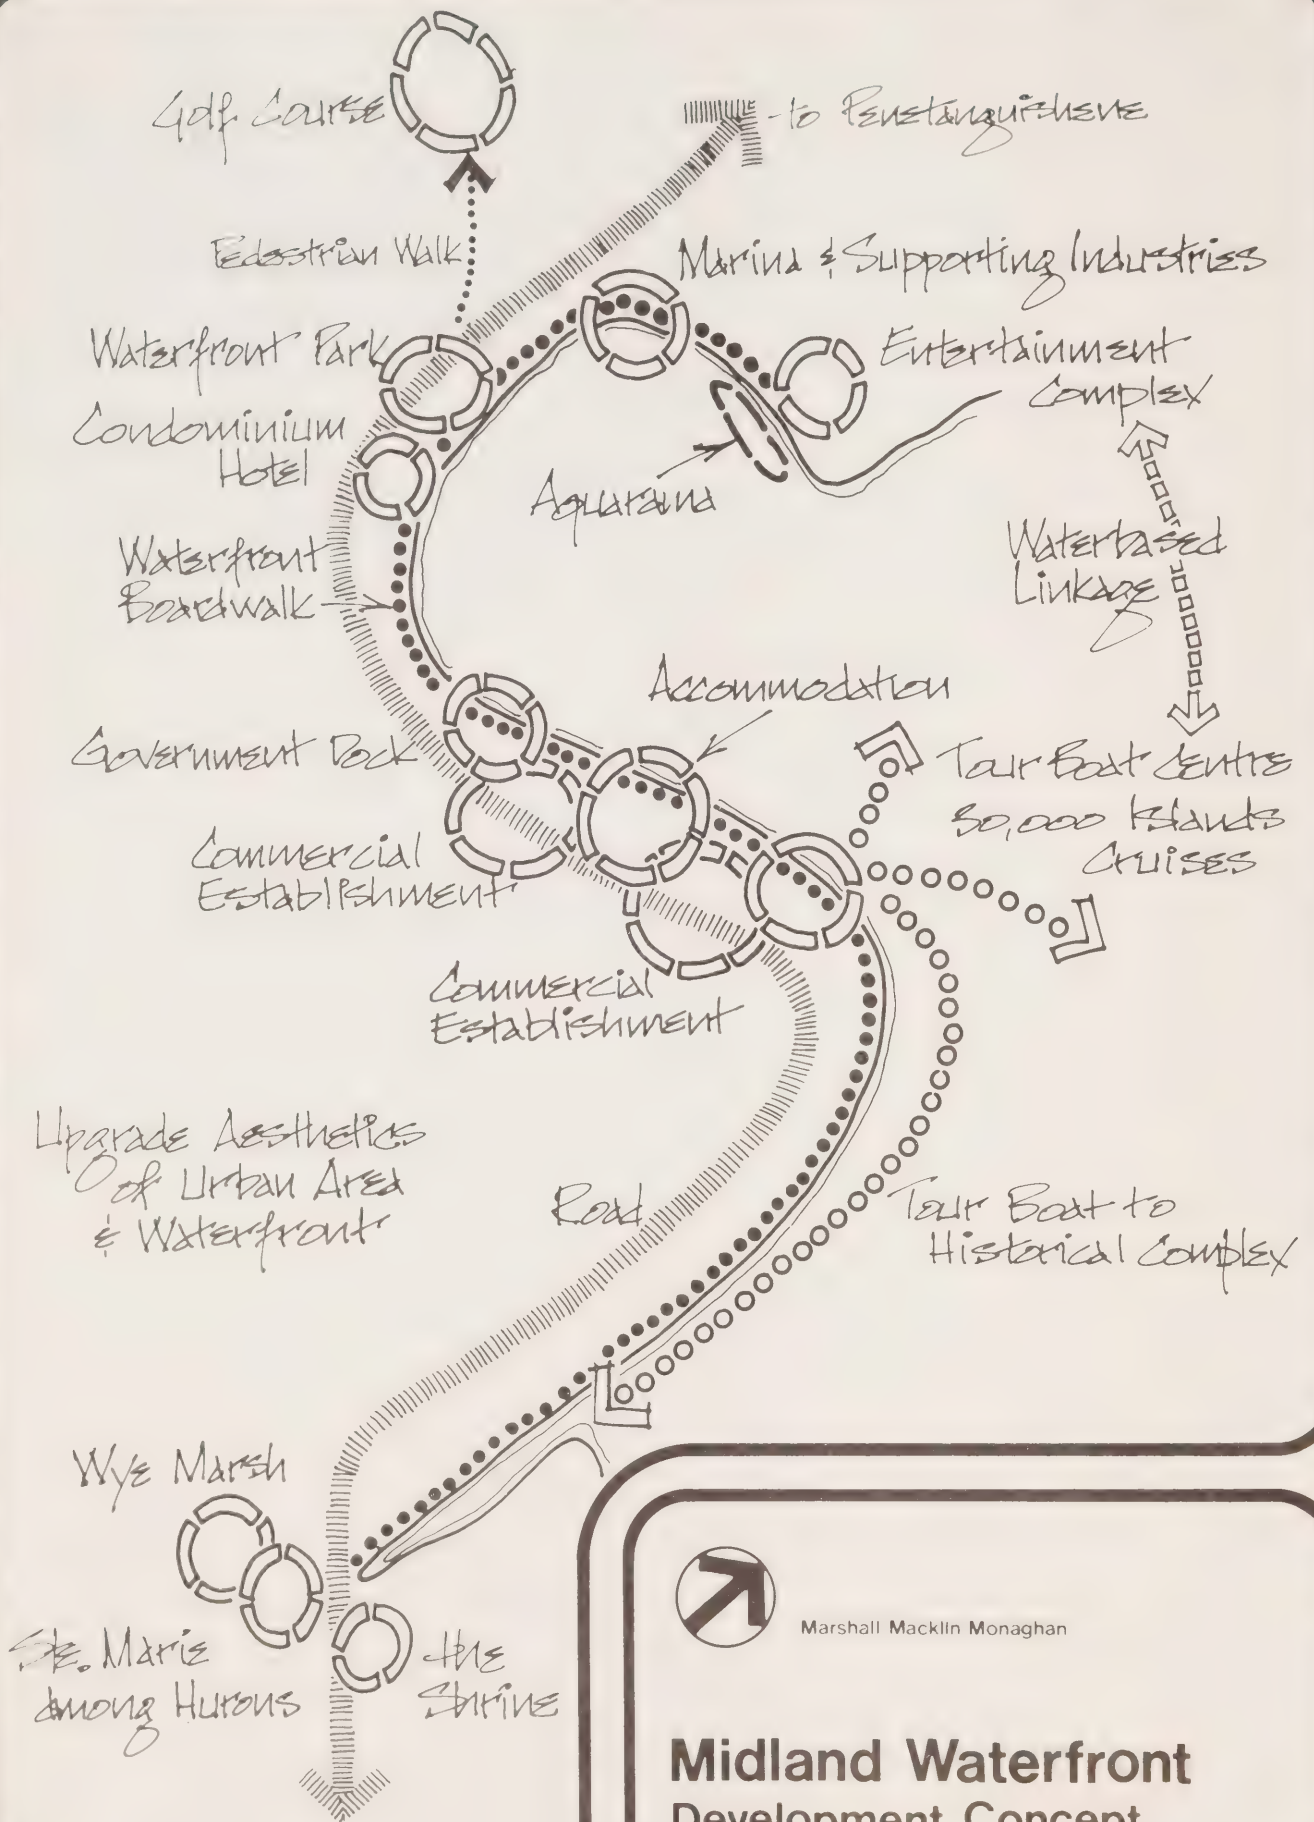 Golf Course
to Penetanguishene
Pedestrian Walk
Marina & Supporting Industries
Waterfront Park
Entertainment
Complex
Condominium
Hotel
Aquarama
Waterfront
Boardwalk
Waterbased
Linkage
Accommodation
Government Dock
Tour Boat Centre
30,000 Islands
Cruises
Commercial
Establishment
Commercial
Establishment
Upgrade Aesthetics
of Urban Area
& Waterfront
Road
Tour Boat to
Historical Complex
Wye Marsh
Ste. Marie
among Hurons
the
Shrine
Marshall Macklin Monaghan
Midland Waterfront
Development Concept